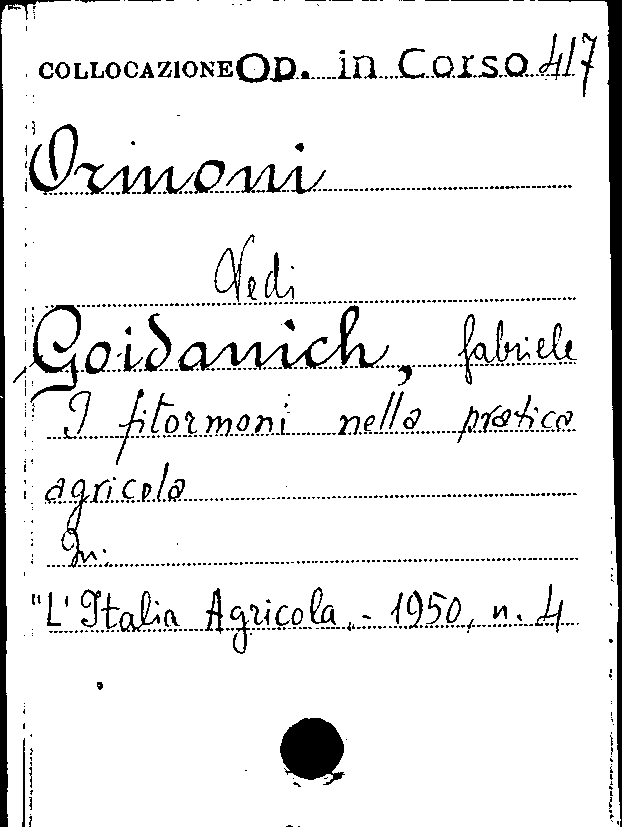 COLLOCAZIONE Op. in Corso 417
Ormoni
Vedi
Goidanich, Gabriele
I fitormoni nella pratica
agricola
In:
"L'Italia Agricola„ - 1950, n. 4